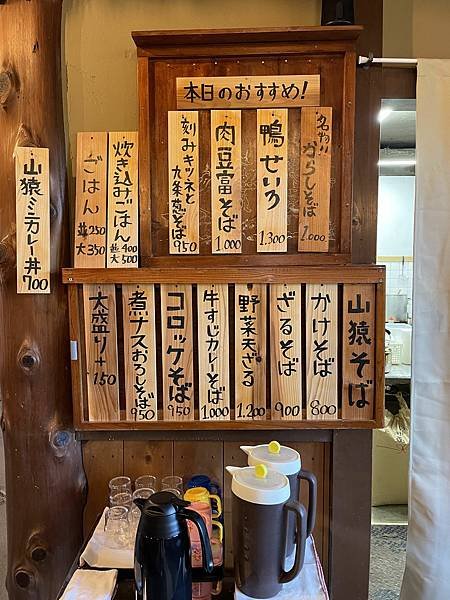 本日のおすすめ!
名物!! からしそば 1.000
鴨せいろ 1.300
肉豆富そば 1.000
刻みキツネと九条葱そば 950
炊き込みごはん 並400 大500
ごはん 並250 大350
山猿ミニカレー丼 700
山猿そば
かけそば 800
ざるそば 900
野菜天ざる 1.200
牛すじカレーそば 1.000
コロッケそば 950
煮ナスおろしそば 950
大盛り+150